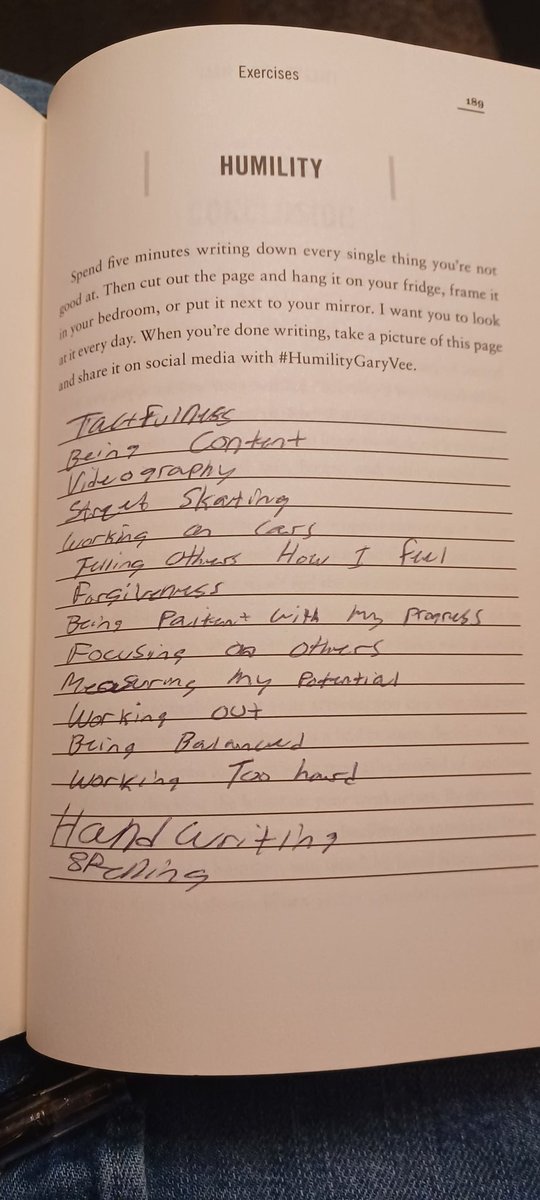 Exercises
189
HUMILITY
Spend five minutes writing down every single thing you're not
good at. Then cut out the page and hang it on your fridge, frame it
in your bedroom, or put it next to your mirror. I want you to look
at it every day. When you're done writing, take a picture of this page
and share it on social media with #HumilityGaryVee.
Tactfulness
Being Content
Videography
Street Skating
Working on Cars
Telling Others How I feel
Forgiveness
Being Paitent with my progress
Focusing on others
Measuring my Potential
Working out
Being Balanced
Working Too hard
Hand writing